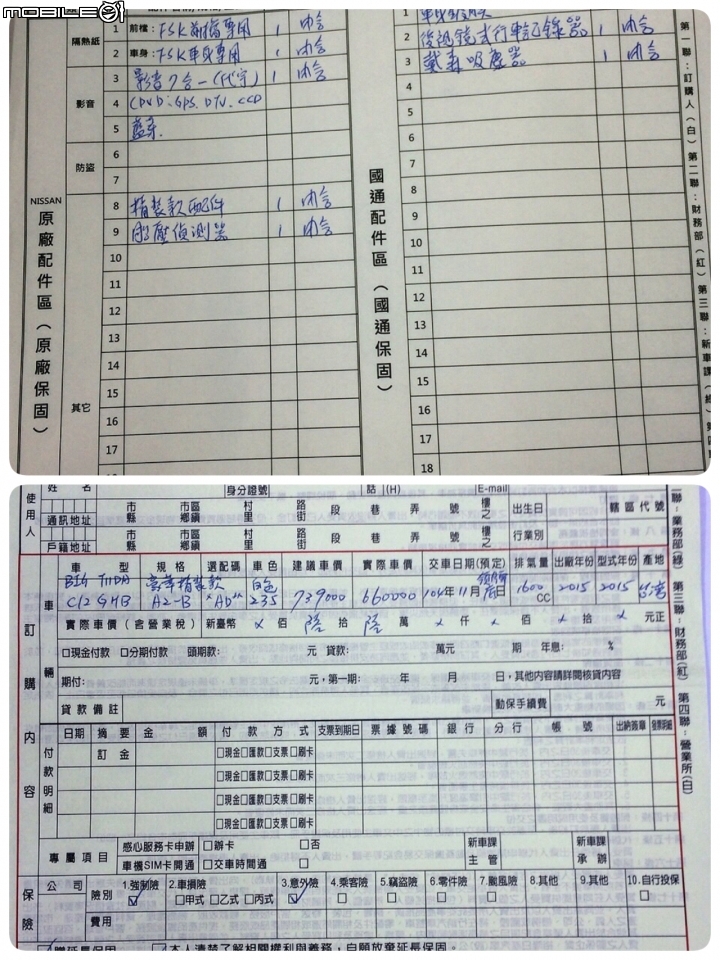 MOBILE01
隔熱紙
1 前檔：FSK前檔專用 1 內含
2 車身：FSK車身專用 1 內含
影音
3 影音7合一(代字) 1 內含
4 (DVD:GPS.DTV.CCD
5 藍牙.
防盜
6
7
其它
8 精裝款配件 1 內含
9 胎壓偵測器 1 內含
10
11
12
13
14
15
16
17
NISSAN
原廠配件區（原廠保固）
1
2 後視鏡式行車記錄器 1 內含
3 戴森吸塵器 1 內含
4
5
6
7
8
9
10
11
12
13
14
15
16
17
18
國通配件區（國通保固）
第一聯：訂購人(白) 第二聯：財務部(紅) 第三聯：新車課(綠) 第四
使用人
姓 名 身分證號 話 (H) E-mail
通訊地址 市縣 市區鄉鎮 村里 路街 段 巷 弄 號 樓之 出生日 轄區代號
戶籍地址 市縣 市區鄉鎮 村里 路街 段 巷 弄 號 樓之 行業別
訂購內容
車輛
車 型 規格 選配碼 車色 建議車價 實際車價 交車日期(預定) 排氣量 出廠年份 型式年份 產地
BIG TIIDA 豪華精裝款 白色
C12 GHB A2-B "AD" 235 739000 660000 104年11月 日 1600CC 2015 2015 台灣
實際車價（含營業稅）新臺幣 × 佰 陸 拾 陸 萬 × 仟 × 佰 × 拾 × 元正
□現金付款 □分期付款 頭期款： 元 貸款： 萬元 期 年息： %
期付： 元，第一期： 年 月 日，其他內容請詳閱核貸內容
貸款備註 動保手續費 元
付款明細
日期 摘要 金 額 付款方式 支票到期日 票據號碼 銀行 分行 帳 號 出納簽章
訂金 □現金□匯款□支票□刷卡
□現金□匯款□支票□刷卡
□現金□匯款□支票□刷卡
□現金□匯款□支票□刷卡
專屬項目
感心服務卡申辦 □辦卡 □否
車機SIM卡開通 □交車時開通 □
新車課主管
新車課承辦
保險
公司 險別 1.強制險 ☑ 2.車損險 □甲式□乙式□丙式 3.意外險 ☑ 4.乘客險 □ 5.竊盜險 □ 6.零件險 □ 7.颱風險 □ 8.其他 9.其他 10.自行投保 □
費用
贈延長保固 本人清楚了解相關權利與義務，自願放棄延長保固。
聯：業務部(綠) 第三聯：財務部(紅) 第四聯：營業所(白)